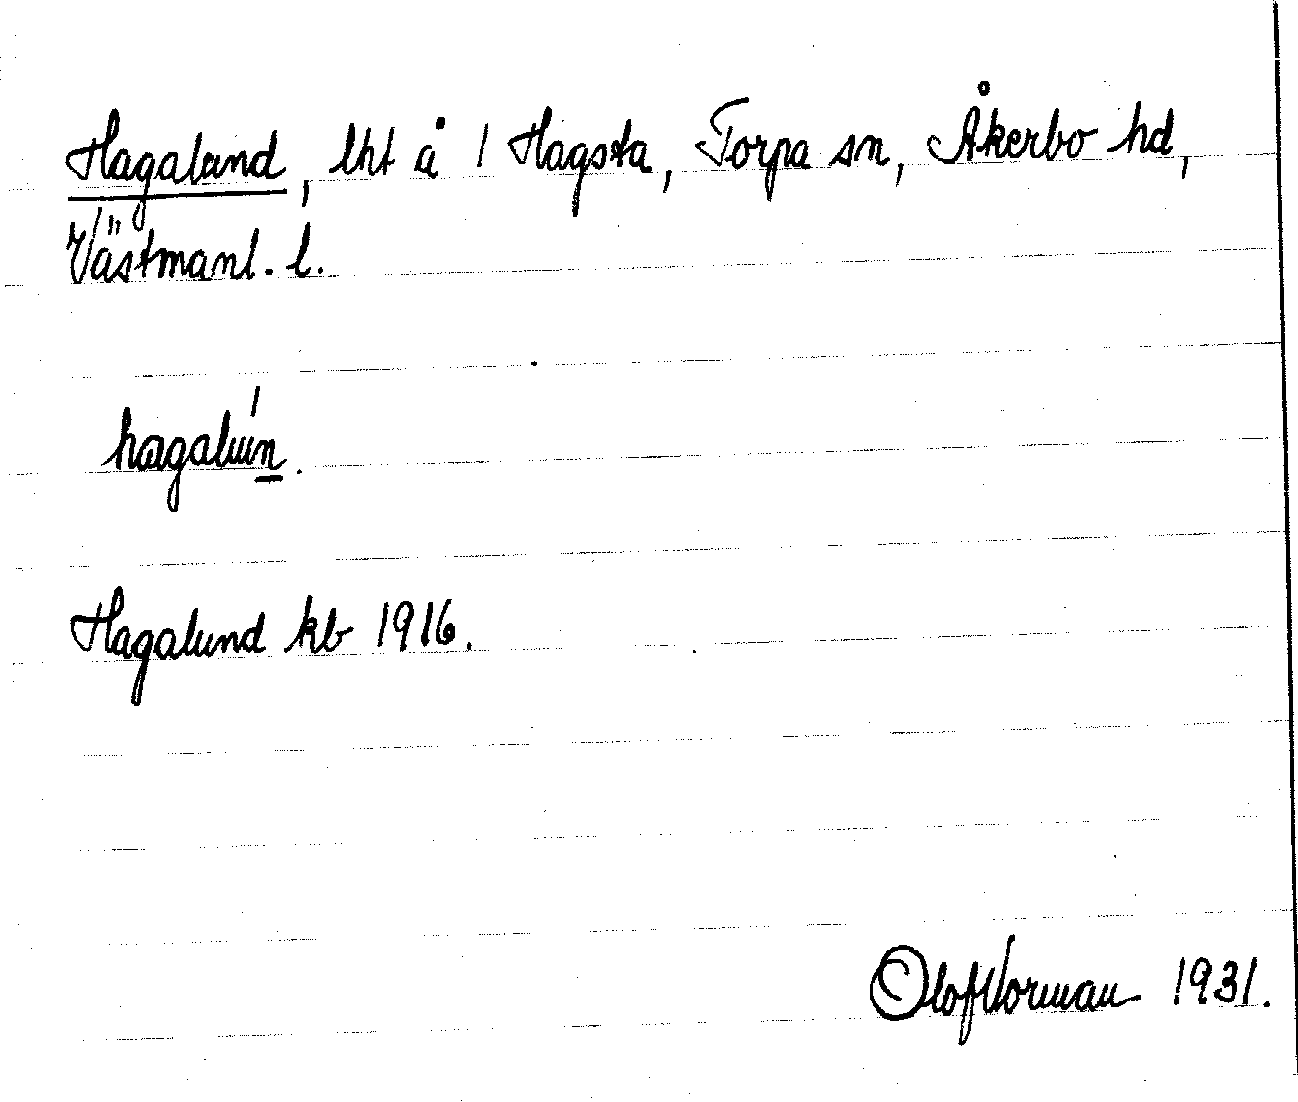 Hagalund, lht å 1 Hagsta, Torpa sn, Åkerbo hd,
Västmanl. l.
hagalun.
Hagalund kb 1916.
Olof Norman 1931.